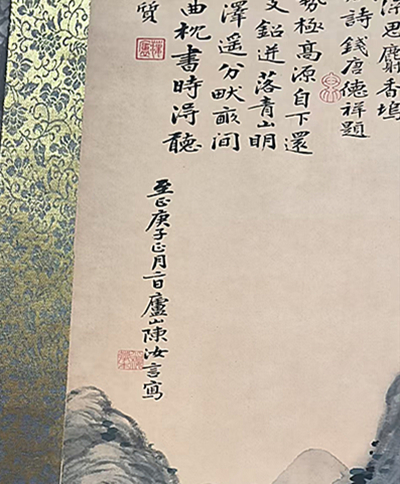 思麝香塢
詩錢唐德祥題
極高源自下還
鉛迸落青山明
澤遥分畎畝間
曲枕書時得聽
質
至正庚子正月二日廬山陳汝言寫